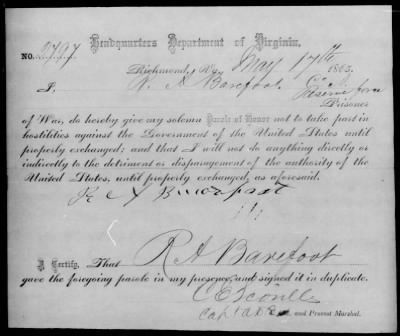 Headquarters Department of Virginia,
NO. 9797
Richmond, Va., May 17th 1865.
I, R. A Barefoot
Prisoner
of War, do hereby give my solemn Parole of Honor not to take part in
hostilities against the Government of the United States until
properly exchanged; and that I will not do anything directly or
indirectly to the detriment or disparagement of the authority of the
United States, until properly exchanged, as aforesaid.
R A Barefoot
I Certify, That R A Barefoot
gave the foregoing parole in my presence, and signed it in duplicate.
and Provost Marshal.